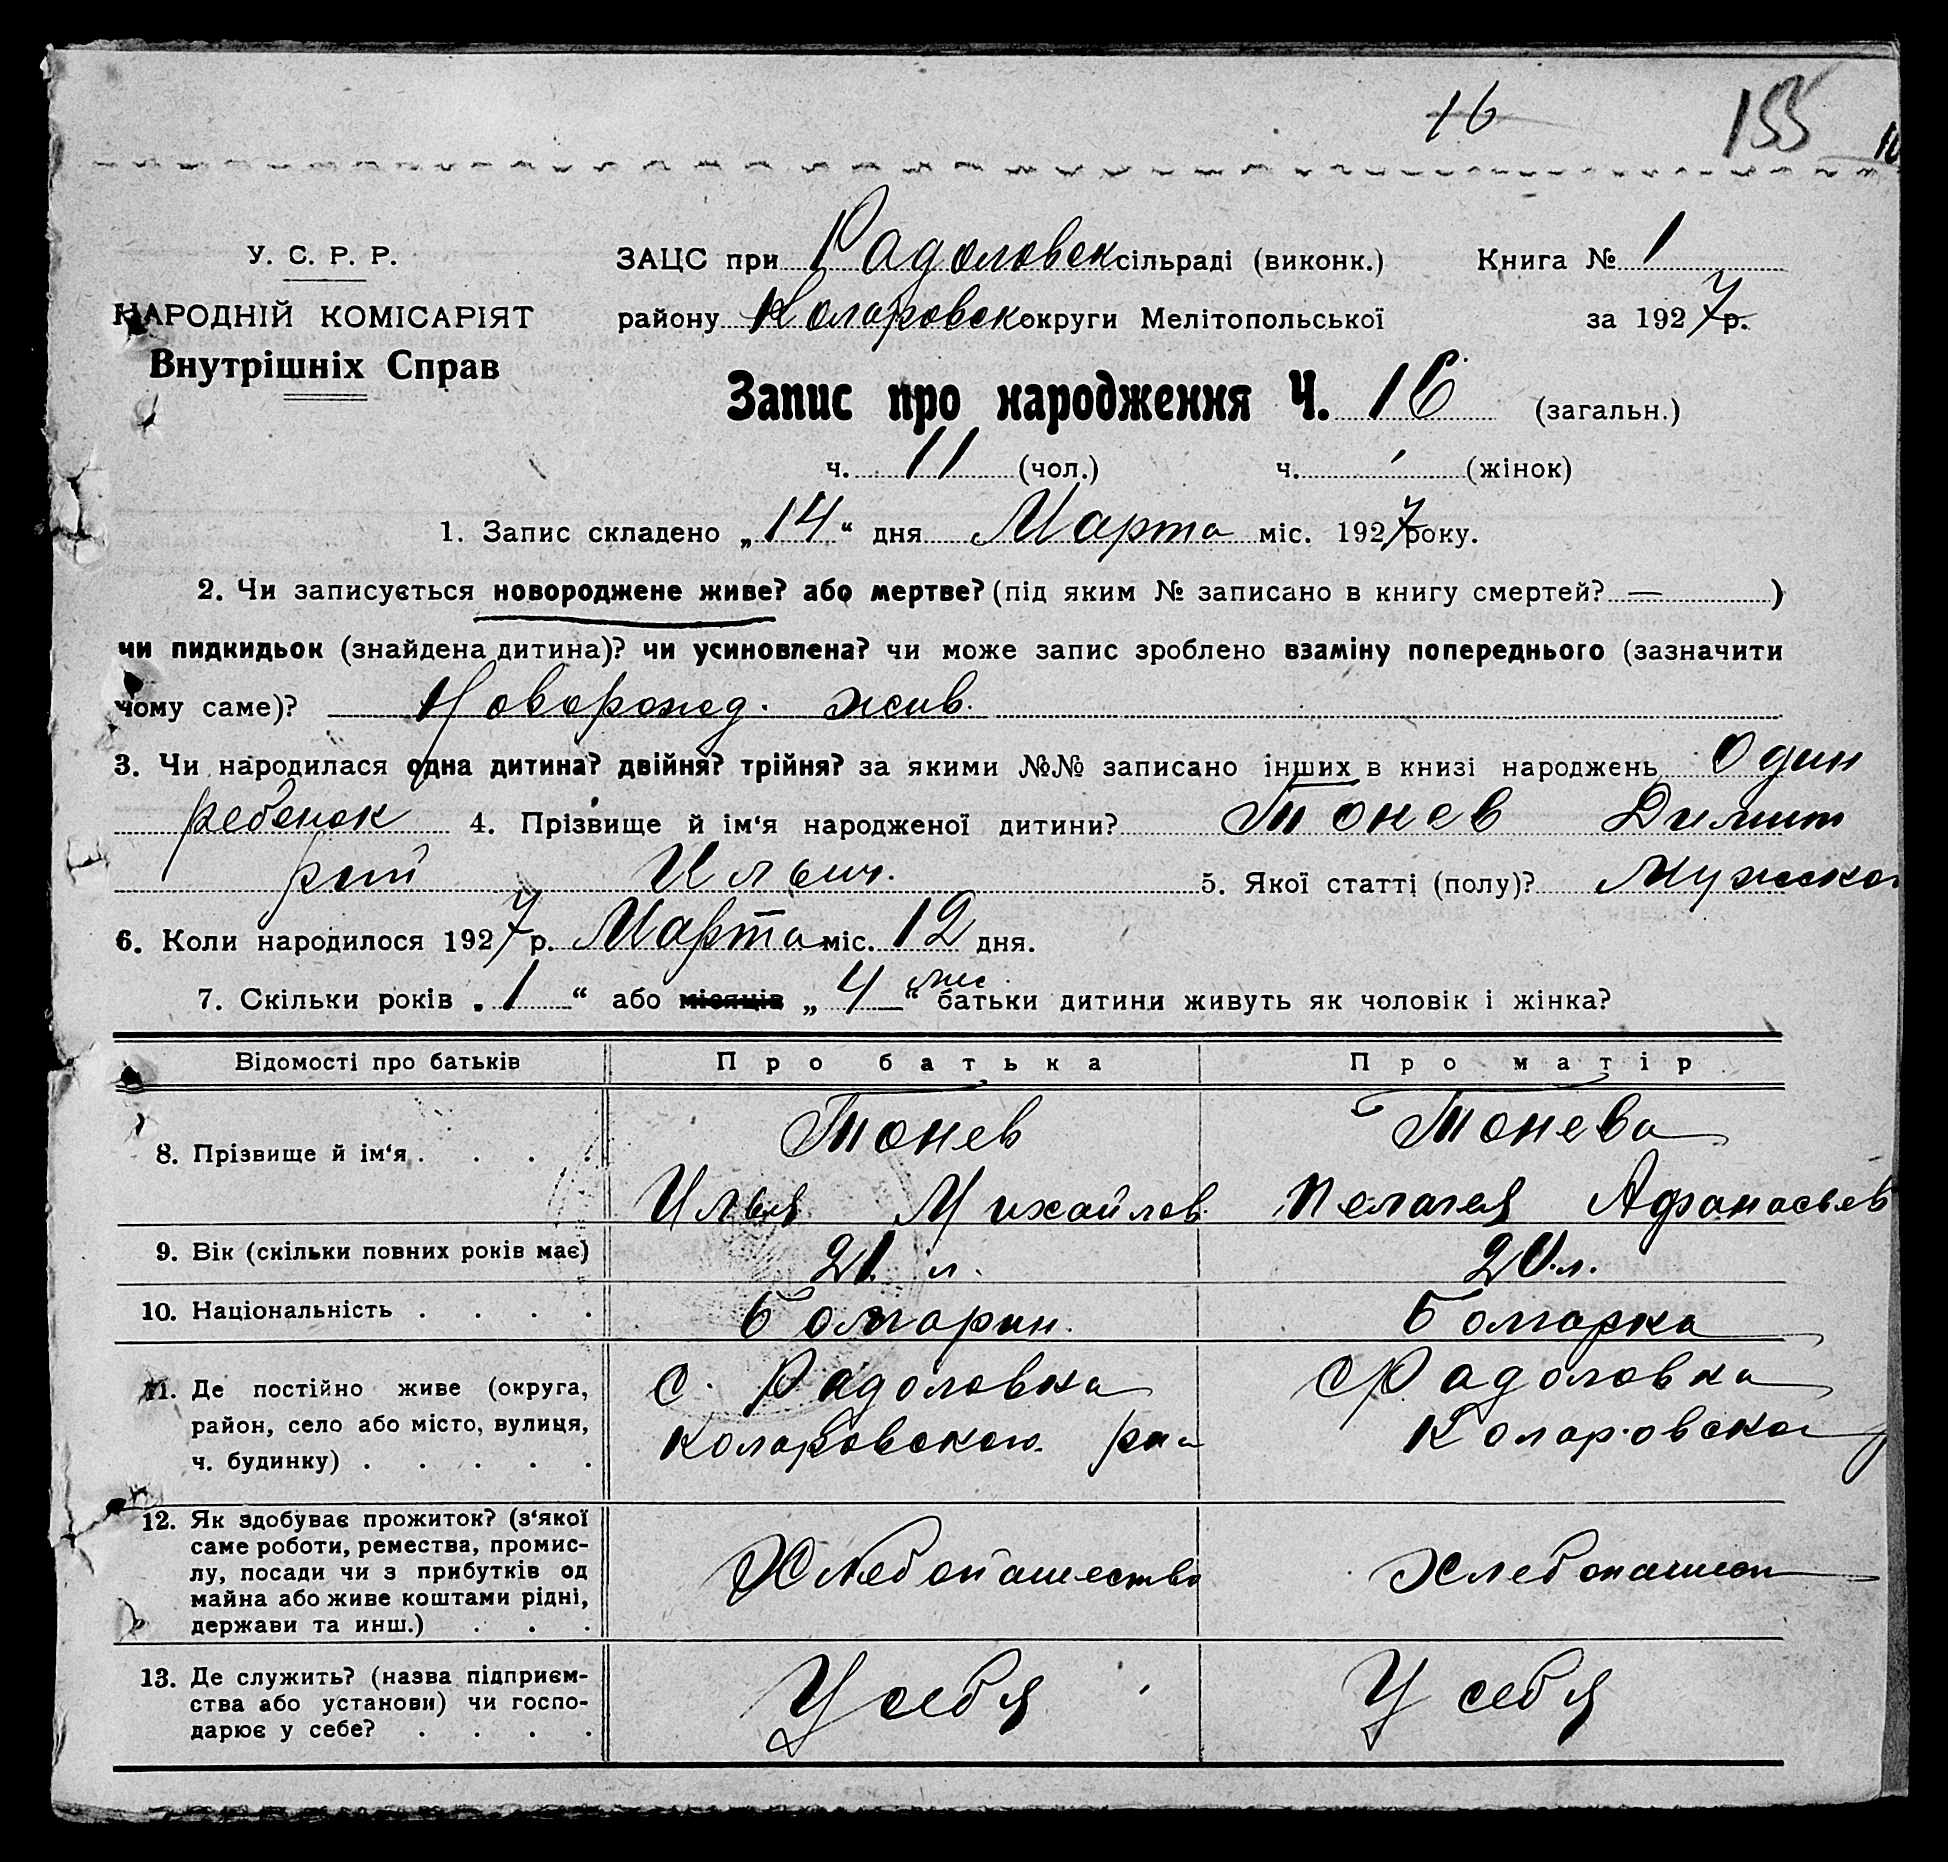 16 155
У. С. Р. Р. ЗАЦС при Радоловск сільраді (виконк.) Книга № 1
НАРОДНІЙ КОМІСАРІЯТ району Коларовск округи Мелітопольської за 1927 р.
Внутрішніх Справ
Запис про народження Ч. 16 (загальн.)
ч. 11 (чол.) ч. (жінок)
1. Запис складено „14“ дня Марта міс. 1927 року.
2. Чи записується новороджене живе? або мертве? (під яким № записано в книгу смертей? — )
чи пидкидьок (знайдена дитина)? чи усиновлена? чи може запис зроблено взаміну попереднього (зазначити
чому саме)? Новорожд. жив.
3. Чи народилася одна дитина? двійня? трійня? за якими №№ записано інших в книзі народжень Один
ребенок 4. Прізвище й ім‘я народженої дитини? Тонев Димит
рий Ильич. 5. Якої статті (полу)? Мужско
6. Коли народилося 1927 р. Марта міс. 12 дня.
7. Скільки років „1“ або місяців „4“ мес. батьки дитини живуть як чоловік і жінка?
Відомості про батьків Про батька Про матір
8. Прізвище й ім‘я . . . . Тонев Тонева
Илья Михайлов. Пелагея Афанасьев
9. Вік (скільки повних років має) 21 л. 20 л.
10. Національність . . . . Болгарин. Болгарка
11. Де постійно живе (округа, с. Радоловка с Радоловка
район, село або місто, вулиця, Коларовского Коларовско
ч. будинку) . . . . .
12. Як здобуває прожиток? (з‘якої
саме роботи, ремества, промис-
лу, посади чи з прибутків од Хлебопашество Хлебопашест
майна або живе коштами рідні,
держави та инш.) . . .
13. Де служить? (назва підприєм-
ства або установи) чи госпо- У себя У себя
дарює у себе? . . . .